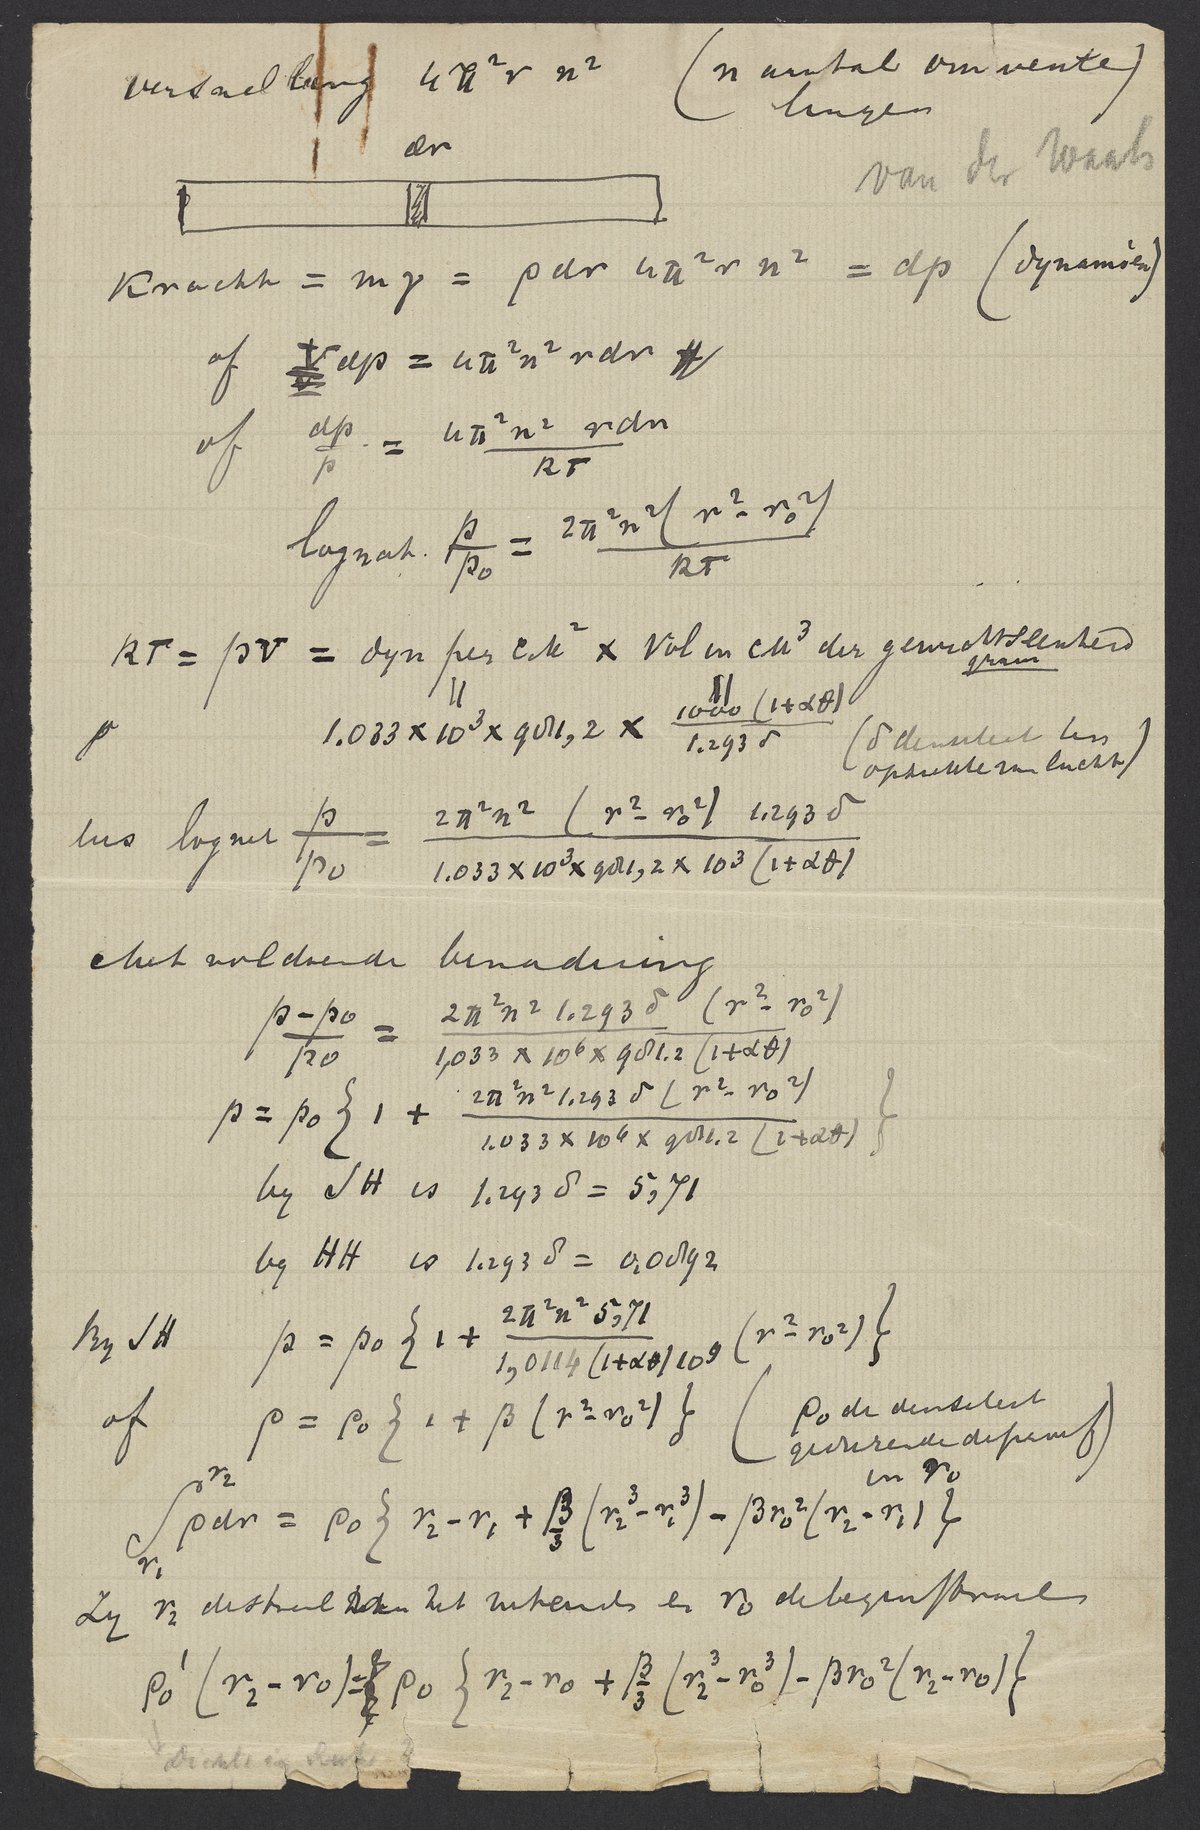 versnelling 4π²r n² (n aantal omwente
lingen)
van der Waals
dr
Kracht = mγ = ρdr 4π²r n² = dp (dynamisch)
of v dp = 4π²n² rdr
of dp/p = 4π²n² rdr / RT
lognat. p/p₀ = 2π²n²(r² - r₀²) / RT
RT = pv = dyn per cM² × Vol in cM³ der gewichtseenheid
gram
p 1.033 × 10³ × 981,2 × 1000 (1+αθ) / 1.293 δ (δ densiteit ten
opzichte van lucht)
dus lognat p/p₀ = 2π²n² (r² - r₀²) 1.293 δ / 1.033 × 10³ × 981,2 × 10³ (1+αθ)
Met voldoende benadering
p - p₀ / p₀ = 2π²n² 1.293 δ (r² - r₀²) / 1,033 × 10⁶ × 981.2 (1+αθ)
p = p₀ { 1 + 2π²n² 1.293 δ (r² - r₀²) / 1.033 × 10⁶ × 981.2 (1+αθ) }
by JH is 1.293 δ = 5,71
by HH is 1.293 δ = 0,0892
By JH p = p₀ { 1 + 2π²n² 5,71 / 1,0114 (1+αθ) 10⁹ (r² - r₀²) }
of ρ = ρ₀ { 1 + β (r² - r₀²) } (ρ₀ de densiteit
gedurende de proef)
in r₀
∫ r₁ r₂ ρdr = ρ₀ { r₂ - r₁ + β/3 (r₂³ - r₁³) - βr₀² (r₂ - r₁) }
Zy r₂ de straal het uiteinde en r₀ de beginstraal
ρ₀' (r₂ - r₀) = ρ₀ { r₂ - r₀ + β/3 (r₂³ - r₀³) - βr₀² (r₂ - r₀) }